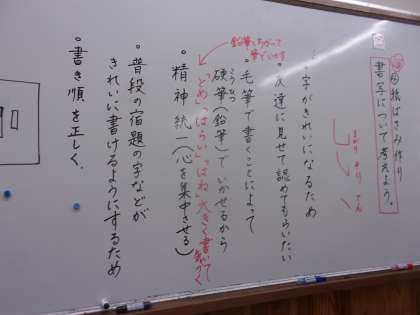 用紙ばさみ作り
書写について考えよう。
字がきれいになるため
・友達に見せて認めてもらいたい
・毛筆で書くことによって
硬筆(鉛筆)でいかせるから
こうひつ
鉛筆とちがって
筆でいかす
・精神統一(心を集中させる)
「とめ」「はらい」「はね」大きく書いて
・普段の宿題の字などが
きれいに書けるようにするため
・書き順を正しく。